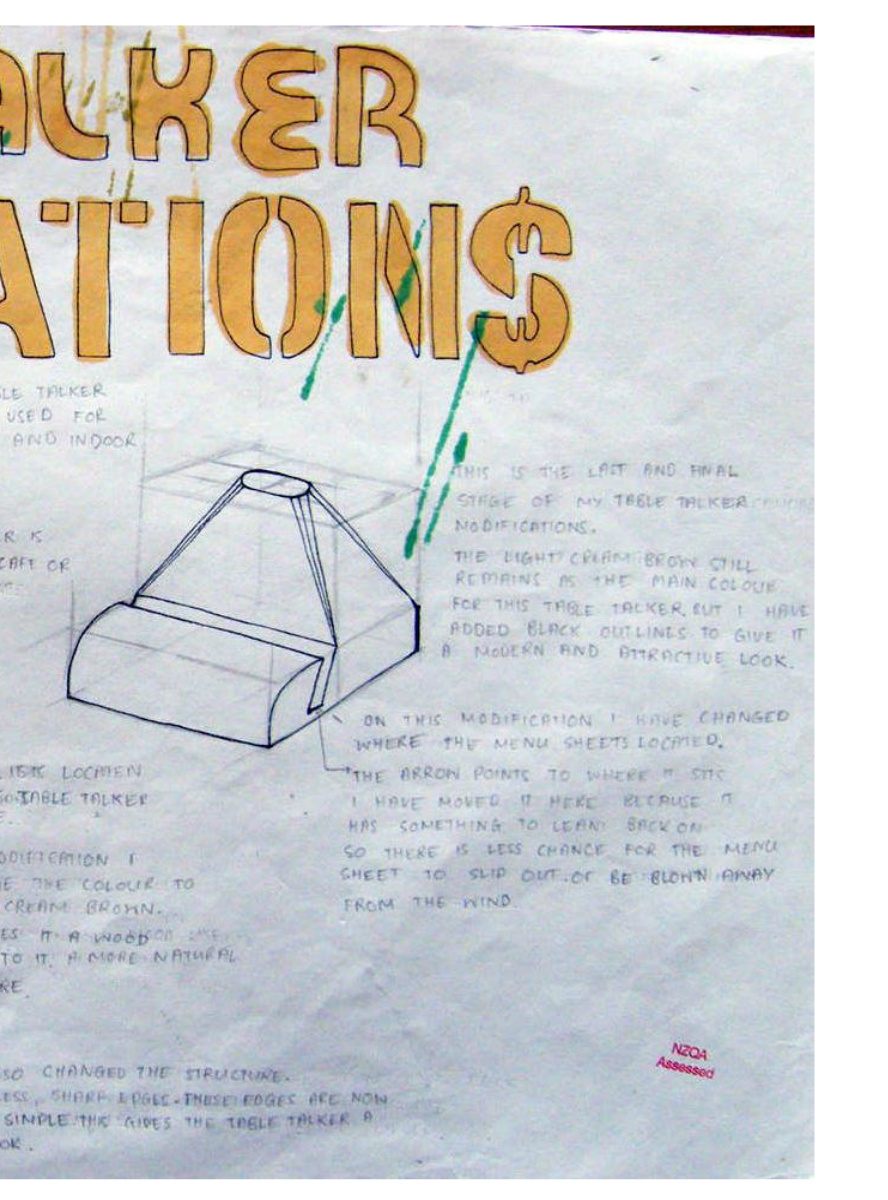 ALKER
ATIONS
BLE TALKER
USED FOR
AND INDOOR
R IS
CAFE OR
THIS IS THE LAST AND FINAL
STAGE OF MY TABLE TALKER
MODIFICATIONS.
THE LIGHT CREAM BROWN STILL
REMAINS AS THE MAIN COLOUR
FOR THIS TABLE TALKER. BUT I HAVE
ADDED BLACK OUTLINES TO GIVE IT
A MODERN AND ATTRACTIVE LOOK.
ON THIS MODIFICATION I HAVE CHANGED
WHERE THE MENU SHEETS LOCATED.
THE ARROW POINTS TO WHERE IT SITS
I HAVE MOVED IT HERE BECAUSE IT
HAS SOMETHING TO LEAN BACK ON
SO THERE IS LESS CHANCE FOR THE MENU
SHEET TO SLIP OUT. OR BE BLOWN AWAY
FROM THE WIND.
LOCATEN
TABLE TALKER
ODIFICATION I
E THE COLOUR TO
CREAM BROWN.
ES IT A WOOD
TO IT. A MORE NATURAL
RE.
SO CHANGED THE STRUCTURE.
LESS, SHARP EDGES. THESE EDGES ARE NOW
SIMPLE. THIS GIVES THE TABLE TALKER A
OK.
NZQA
Assessed